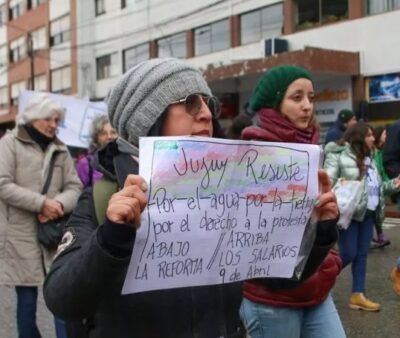 Jujuy Resiste
Por el agua por la tierra
por el derecho a la protesta
ABAJO / ARRIBA
LA REFORMA / LOS SALARIOS
9 de Abril